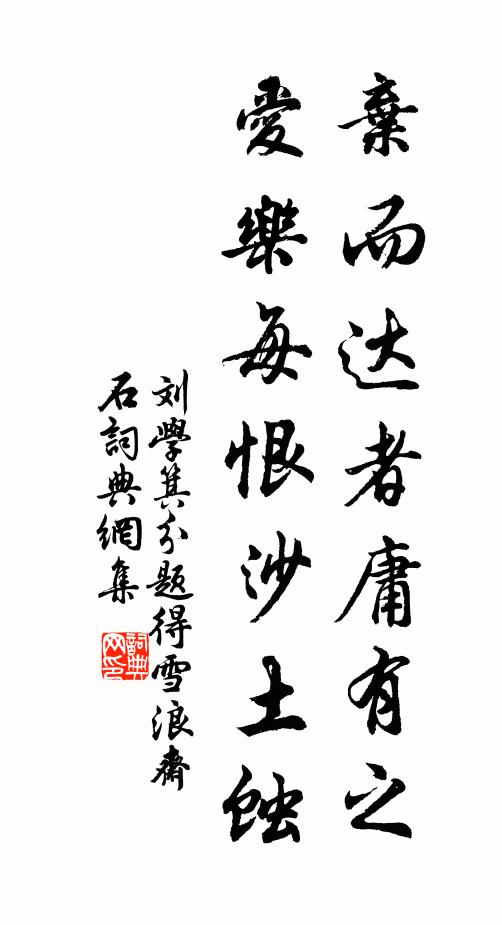 棄而达者庸有之
愛樂每恨沙土蝕
刘學箕分題得雪浪齋
石詞典網集
詞典
网印